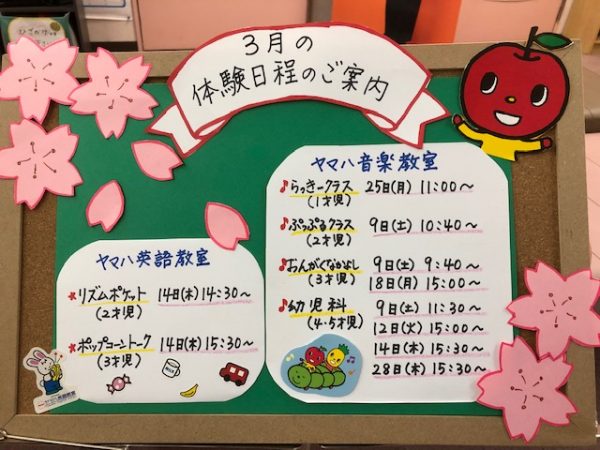 3月の
体験日程のご案内
ヤマハ音楽教室
らっきークラス 25日(月) 11:00～
(1才児)
ぷっぷるクラス 9日(土) 10:40～
(2才児)
おんがくなかよし 9日(土) 9:40～
(3才児) 18日(月) 15:00～
幼児科 9日(土) 11:30～
(4・5才児) 12日(火) 15:00～
14日(木) 15:30～
28日(木) 15:30～
ヤマハ英語教室
リズムポケット 14日(木) 14:30～
(2才児)
ポップコーントーク 14日(木) 15:30～
(3才児)